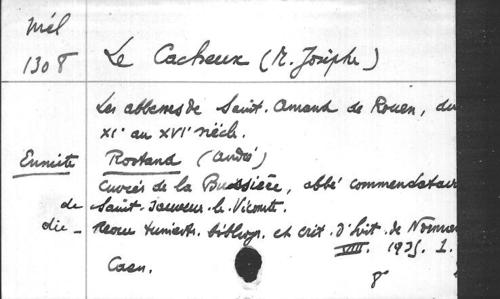 Mél
1308
Le Cacheux (M. Josèphe)
Les abbesses de Saint. Amand de Rouen, du
XIe au XVIe siècle.
Ensuite Rostand (André)
de la Bussière, abbé commendataire
de Saint. Sauveur. le. Vicomte.
die - Revue trimestr. bibliogr. et crit. d'hist. de Norman
VIII. 1935. 1.
Caen. 8°